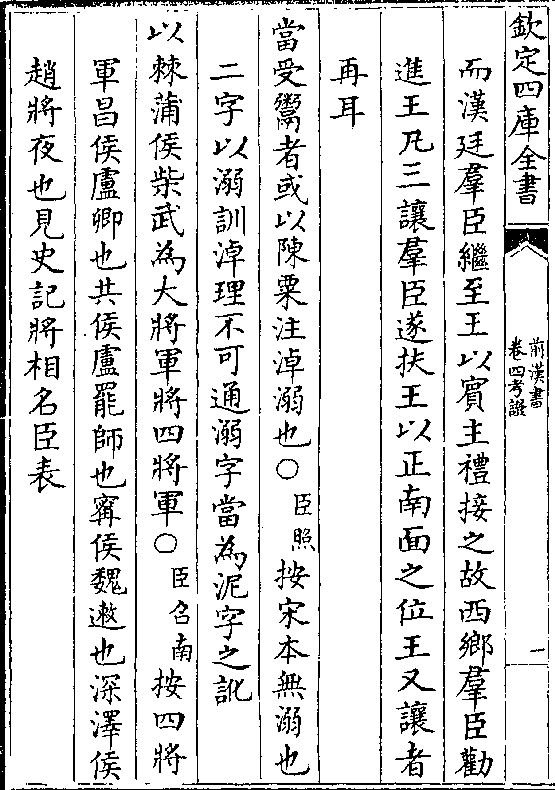 欽定四庫全書
前漢書
卷四考證
一
而漢廷羣臣繼至王以賓主禮接之故西鄉羣臣勸
進王凡三讓羣臣遂扶王以正南面之位王又讓者
再耳
當受鬻者或以陳粟注淖溺也○臣照按宋本無溺也
二字以溺訓淖理不可通溺字當為泥字之訛
以棘蒲侯柴武為大將軍將四將軍○臣召南按四將
軍昌侯盧卿也共侯盧罷師也甯侯魏遬也深澤侯
趙將夜也見史記將相名臣表